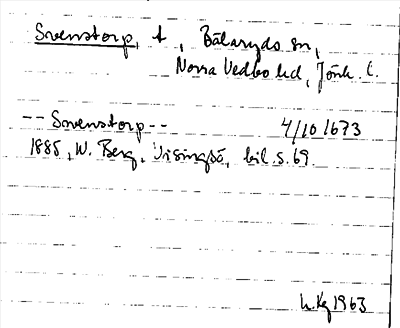 Svenstorp, t, Bälaryds sn,
Norra Vedbo hd, Jönk. l.
-- Svenstorp -- 4/10 1673
1885, W. Berg, Visingsö, bil. s. 69.
1963